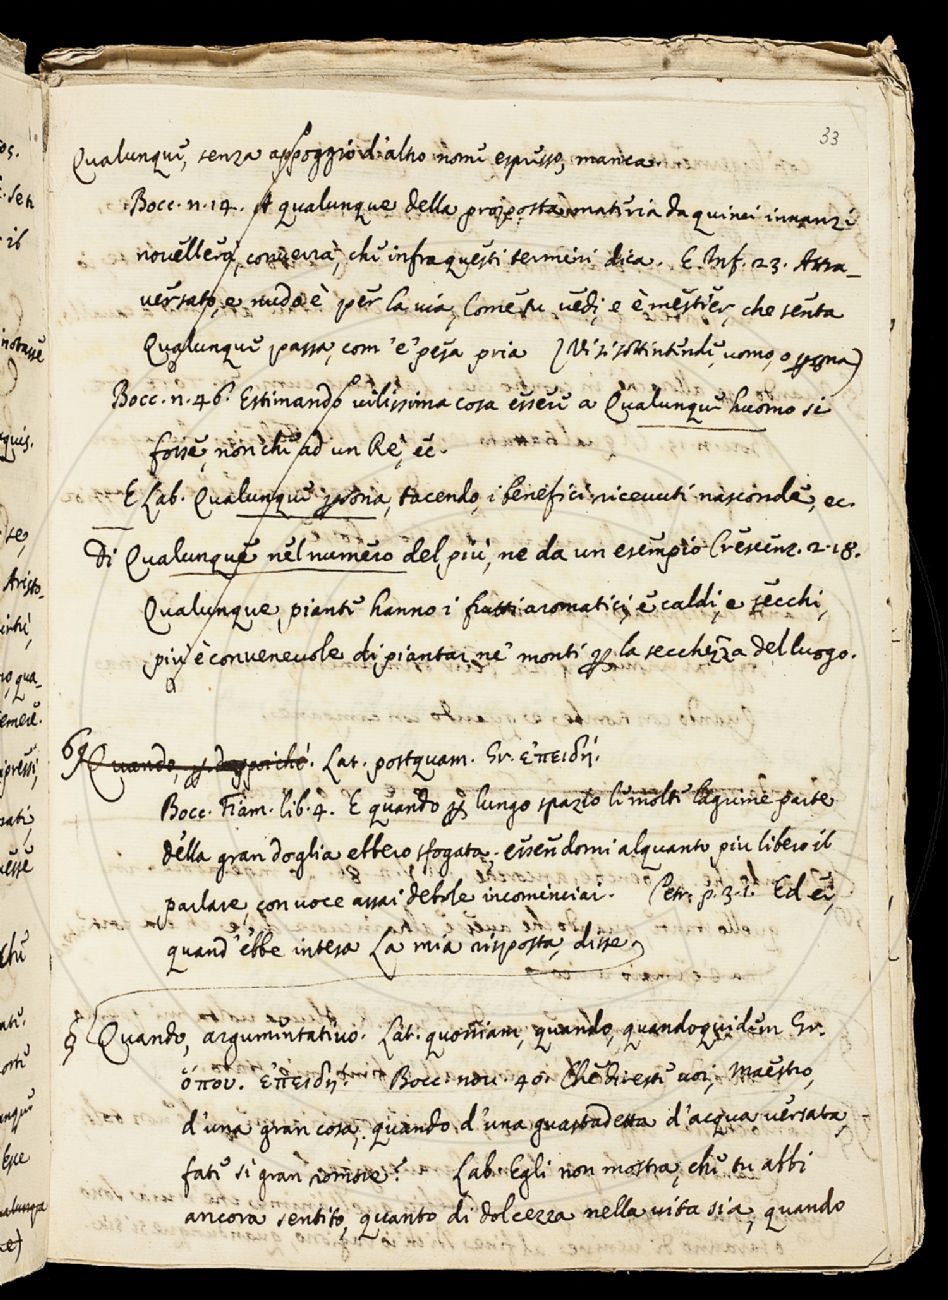 33
Qualunque, senza appoggio d'altro nome espresso, manca.
Bocc. n. 14. A qualunque della proposta materia da quinci innanzi
novellerà, converrà, che infra questi termini dica. E Inf. 23. Attra-
versato, e nudo è per la via, Come tu vedi, e è mestier, che senta
Qualunque passa, com'e' pesa pria (Vi si sottintende, uomo, o psona)
Bocc. n. 46. Estimando vilissima cosa essere a Qualunque huomo si
fosse, non che ad un Re, ec.
E Lab. Qualunque psona, tacendo, i benefici ricevuti nasconde, ec.
Di Qualunque nel numero del più, ne da un esempio Crescenz. 2. 18.
Qualunque piante hanno i frutti aromatici, e caldi, e secchi,
più è convenevole di piantar ne' monti p la secchezza del luogo.
Quando, p dappoiché. Lat. postquam. Gr. ἐπειδή.
Bocc. Fiam. lib. 4. E quando p lungo spazio le molte lagrime parte
della gran doglia ebbero sfogata, essendomi alquanto piu libero il
parlare, con voce assai debole incominciai. Petr. p. 3. 1. Ed ei,
quand'ebbe intesa La mia risposta, disse
§ Quando, argumentativo. Lat. quoniam, quando, quandoquidem Gr.
ὅπου. ἐπειδή. Bocc. nov. 40. Che direste voi, Maestro,
d'una gran cosa, quando d'una guastadetta d'acqua versata,
fate sì gran romore? Lab. Egli non mostra, che tu abbi
ancora sentito, quanto di dolcezza nella vita sia, quando